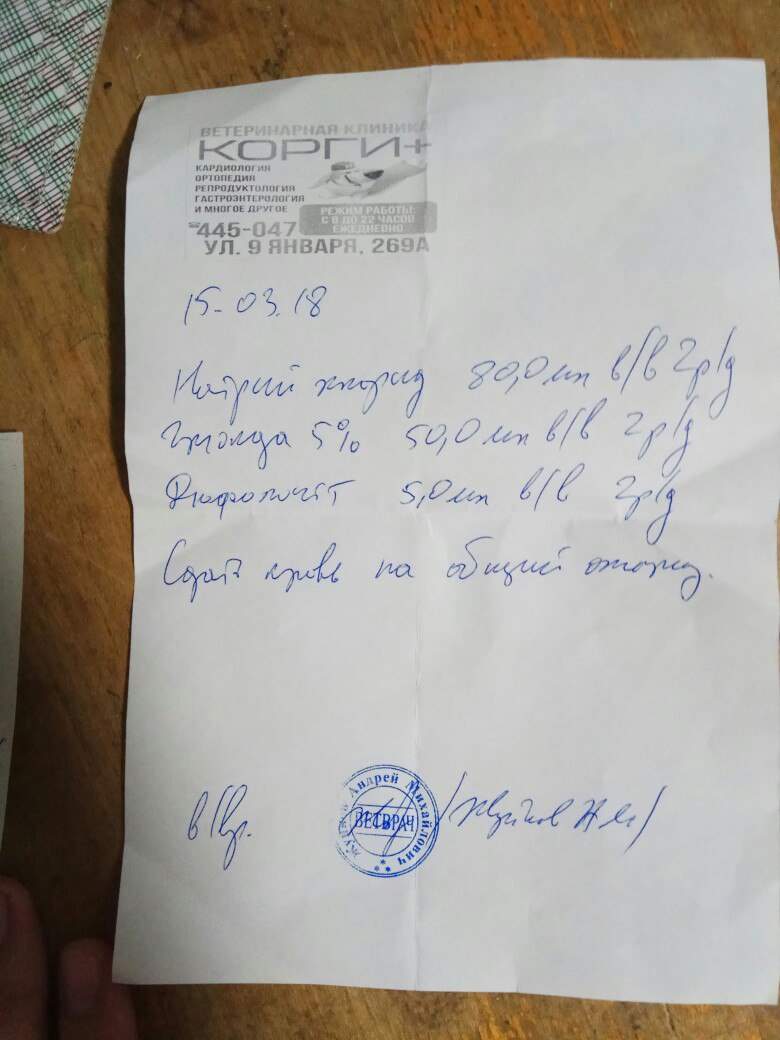 ВЕТЕРИНАРНАЯ КЛИНИКА
КОРГИ+
КАРДИОЛОГИЯ
ОРТОПЕДИЯ
РЕПРОДУКТОЛОГИЯ
ГАСТРОЭНТЕРОЛОГИЯ
И МНОГОЕ ДРУГОЕ
РЕЖИМ РАБОТЫ:
С 8 ДО 22 ЧАСОВ
ЕЖЕДНЕВНО
445-047
УЛ. 9 ЯНВАРЯ, 269А
15.03.18
Натрий хлорид 80,0 мл в/в 2р/д
Глюкоза 5% 50,0 мл в/в 2р/д
Дюфалайт 5,0 мл в/в 2р/д
Сдать кровь на общий анализ.
в/вр.
Андрей Михайлович
ВЕТВРАЧ